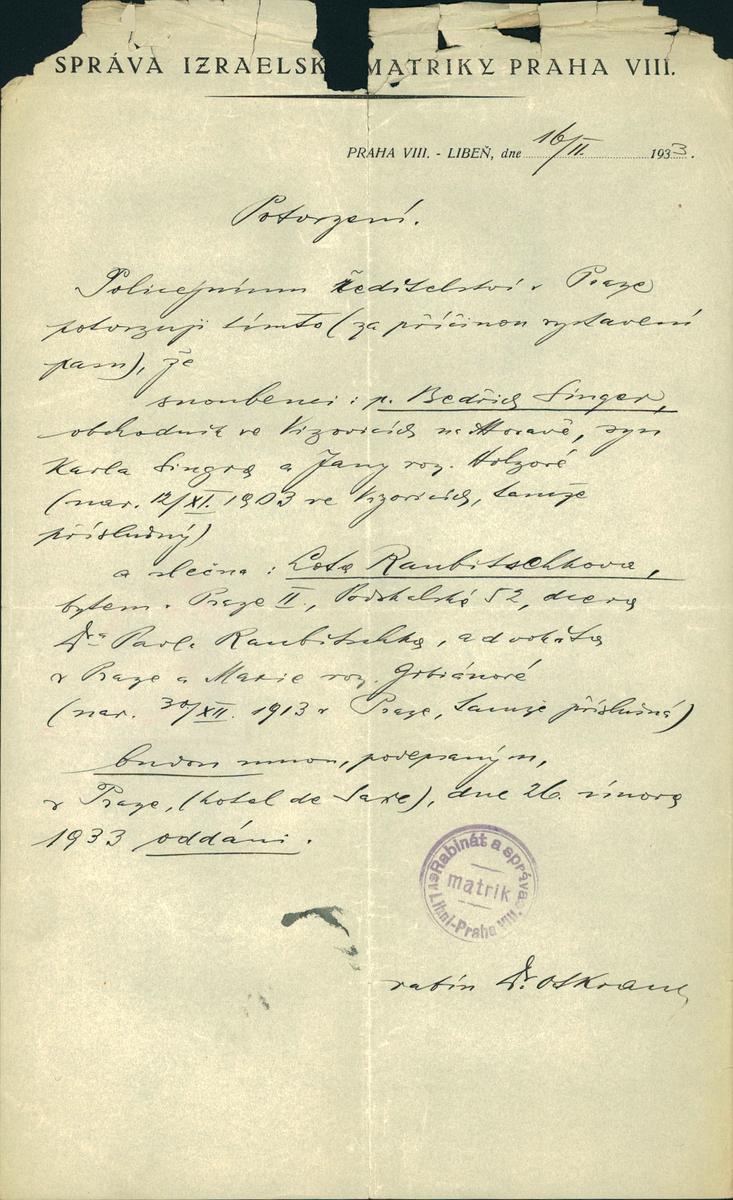 SPRÁVA IZRAELSK MATRIKY PRAHA VIII.
PRAHA VIII. - LIBEŇ, dne 16/II. 1933.
Potvrzení.
Policejnímu ředitelství v Praze
potvrzuji tímto (za příčinou vystavení
pasu), že
snoubenci: p. Bedřich Singer,
obchodník ve Vizovicích na Moravě, syn
Karla Singra a Jany roz. Holzové
(nar. 12/XI. 1903 ve Vizovicích, tamže
příslušný)
a slečna: Lota Raubitschkova,
bytem v Praze II., Podskalská 52, dcera
Dra Pavla Raubitschka, advokáta
v Praze a Marie roz.
(nar. 30/XII. 1913 v Praze, tamže příslušná)
budou mnou, podepsaným,
v Praze, (hotel de Saxe), dne 26. února
1933 oddáni.
Rabinát a správa
matrik
Libni-Praha VIII.
rabín Dr.